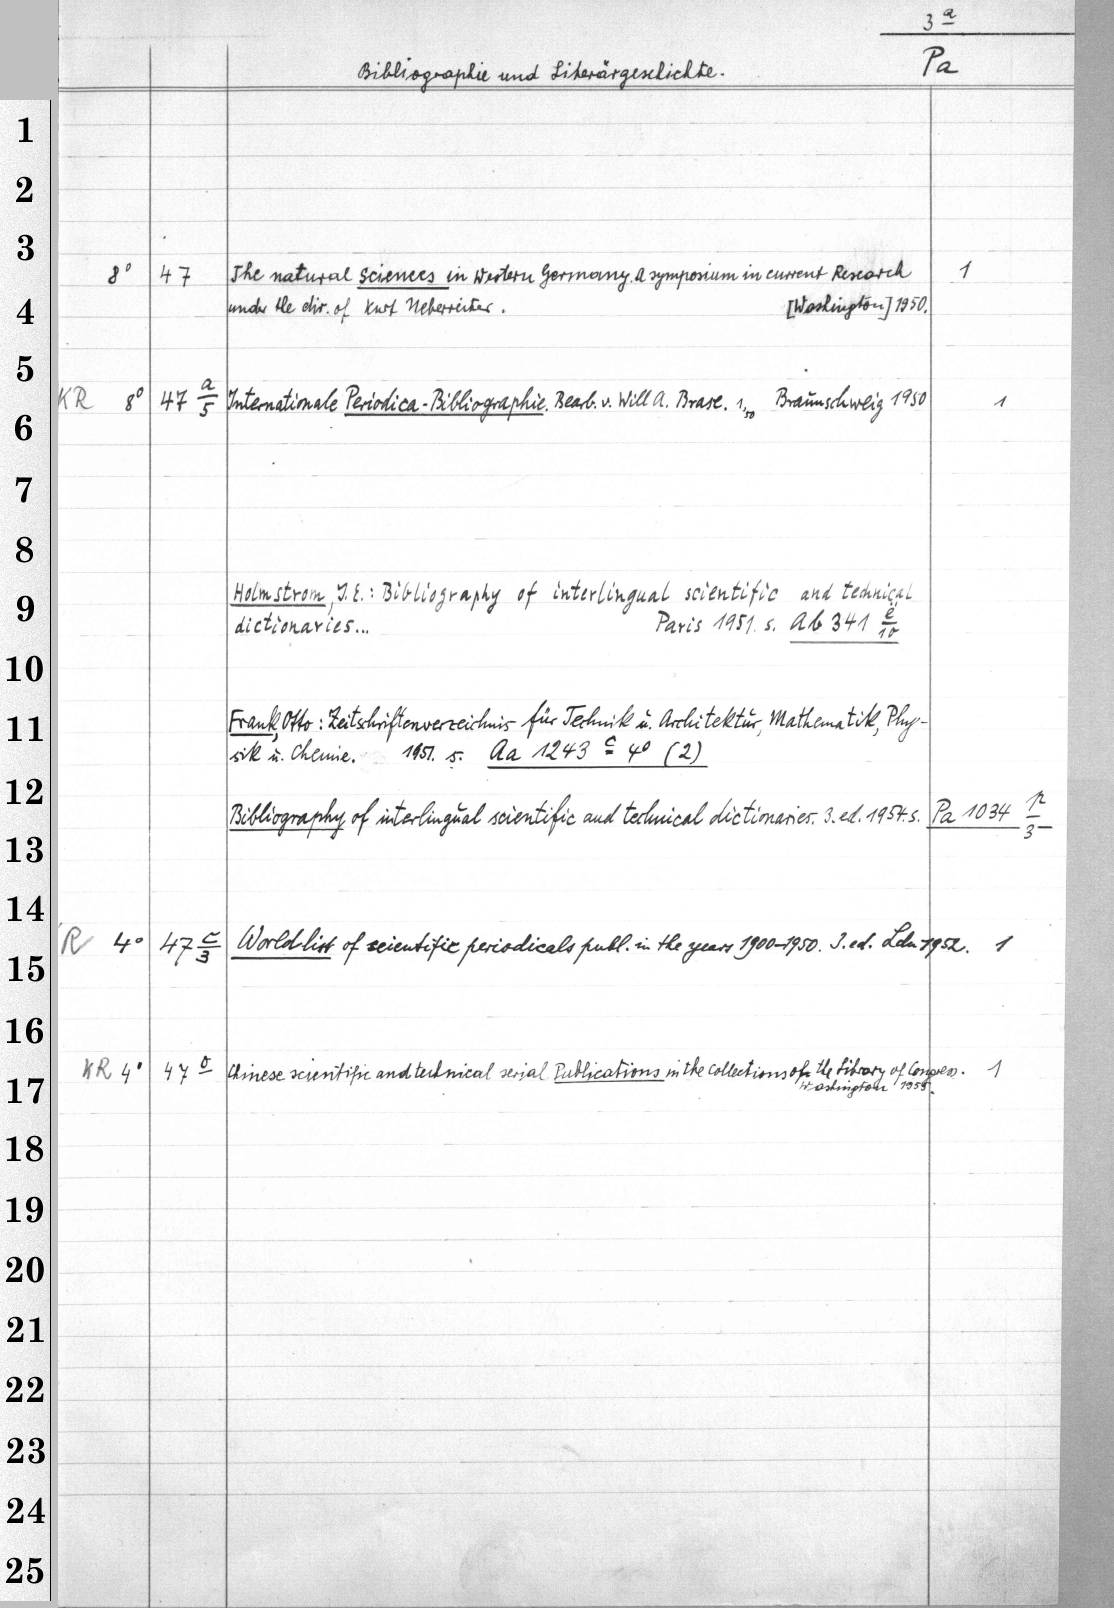 3 a
Bibliographie und Literärgeschichte. Pa
1
2
3
8° 47 The natural Sciences in Western Germany. A symposium in current Research 1
under the dir. of Kurt Ueberreiter. [Washington] 1950.
4
5
KR 8° 47 a/5 Internationale Periodica-Bibliographie. Bearb. v. Will A. Brase. 1,50 Braunschweig 1950 1
6
7
8
Holmstrom, J. E.: Bibliography of interlingual scientific and technical
9
dictionaries... Paris 1951. s. Ab 341 e/10
10
Frank, Otto: Zeitschriftenverzeichnis für Technik u. Architektur, Mathematik, Phy-
11
sik u. Chemie. 1951. s. Aa 1243 c 4° (2)
12
Bibliography of interlingual scientific and technical dictionaries. 3. ed. 1954. s. Pa 1034 /3
13
14
R 4° 47 c/3 World list of scientific periodicals publ. in the years 1900-1950. 3. ed. Ldn 1952. 1
15
16
KR 4° 47 Chinese scientific and technical serial Publications in the collections of the Library of Congress. 1
Washington 1955.
17
18
19
20
21
22
23
24
25